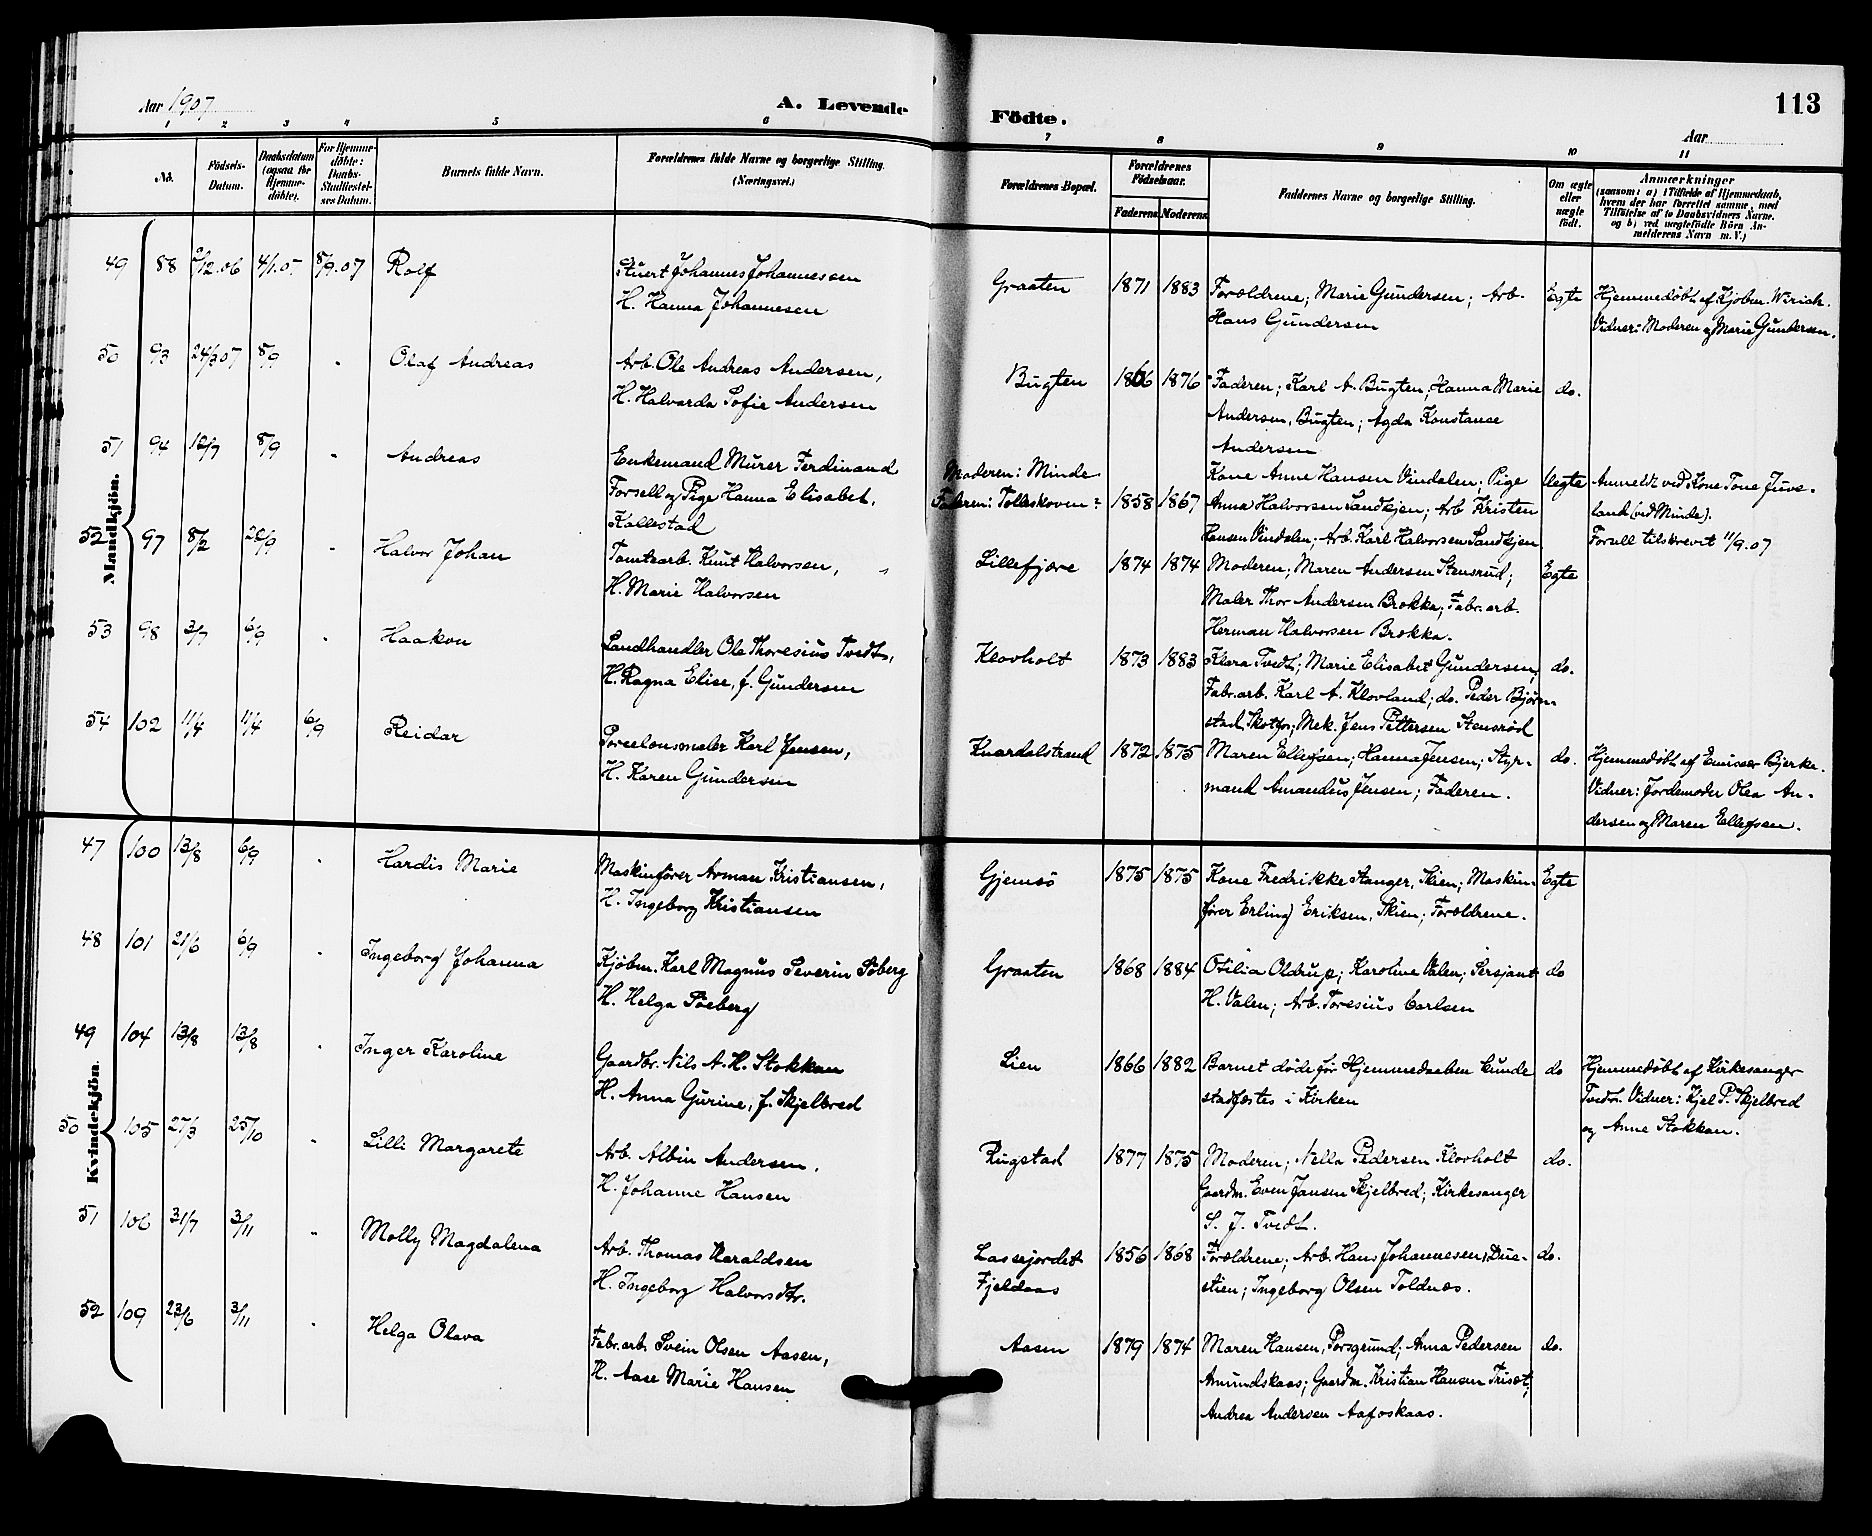 Aar 1907
A. Levende
Födte.
113
Aar
1 2 3 4 5 6 7 8 9 10 11
No.
Födsels-Datum.
Daabsdatum (ogsaa for Hjemme-döbte).
For Hjemme-döbte: Daabs-Stadfæstel-ses Datum.
Barnets fulde Navn.
Forældrenes fulde Navne og borgerlige Stilling. (Næringsvei.)
Forældrenes Bopæl.
Forældrenes Födselsaar.
Faderens Moderens
Faddernes Navne og borgerlige Stilling.
Om ægte eller uægte födt.
Anmærkninger
(saasom: a) i Tilfælde af Hjemmedaab,
hvem der har forrettet samme, med
Tilföielse af to Daabsvidners Navne.
og b) ved uægtefödte Börn An-
melderens Navn m. V.)
Mandkjön.
49 88 2/12.06 4/1.07 8/9.07 Rolf
Stuert Johannes Johannessen
H. Hanna Johannesen
Graaten 1871 1883
Forældrene; Marie Gundersen; Arb.
Hans Gundersen
Egte
Hjemmedøbt af Kjøbm. Wirich.
Vidner: Moderen og Marie Gundersen.
50 93 24/3 07 8/9 " Olaf Andreas
Arb. Ole Andreas Andersen,
H. Halvarda Sofie Andersen
Bugten 1866 1876
Faderen; Karl A. Bugten, Hanna Marie
Andersen, Bugten; Agda Konstanse
Andersen
do.
51 94 12/7 8/9 " Andreas
Enkemand Murer Ferdinand
Forsell og Pige Hanna Elisabet.
Kallestad
Moderen: Minde
Faderen: Tolleskoven: 1858 1867
Kone Anne Hansen Vindalen; Pige
Anna Halvorsen Sandkjen; Arb Kristen
Hansen Vindalen; Arb. Karl Halvorsen Sandkjen
Uegte
Anmeldt ved Kone Tone Juve-
land (ved Minde).
Forsell tilskrevet 11/9.07
52 97 8/2 22/9 " Halvor Johan
Tomtearb. Knut Halvorsen,
H. Marie Halvorsen
Lillefjære 1874 1874
Moderen; Maren Andersen Stensrud;
Maler Thor Andersen Brekka; Fabr. arb.
Herman Halvorsen Brekka.
Egte
53 98 3/7 6/9 " Haakon
Landhandler Ole Thoresius Tvedt,
H. Ragna Elise, f. Gundersen
Klovholt 1873 1883
Klara Tvedt; Marie Elisabet Gundersen,
Fabr. arb. Karl A. Klovland; do. Peder Bjørn-
stad, Skotfos; Mek. Jens Pettersen Stensrød
do.
54 102 11/4 11/4 6/9 Reidar
Porcelænsmaler Karl Jensen,
H. Karen Gundersen
Knardalstrand 1872 1875
Maren Ellefsen; Hanna Jensen; Styr-
mand Amandus Jensen; Faderen.
do.
Hjemmedøbt af Emissær Bjerke.
Vidner: Jordemoder Olea An-
dersen og Maren Ellefsen.
Kvindekjön.
47 100 13/8 6/9 " Hardis Marie
Maskinfører Arman Kristiansen,
H. Ingeborg Kristiansen
Gjemsö 1875 1875
Kone Fredrikke Stanger, Skien; Maskin-
fører Erling Eriksen, Skien; Forældrene.
Egte
48 101 21/6 6/9 " Ingeborg Johanna
Kjøbm. Karl Magnus Severin Söberg
H. Helga Söeberg
Graaten 1868 1884
Otilia Oldrup; Karoline Valen; Sersjant
H. Valen; Arb. Toresius Carlsen
do
49 104 13/8 13/8 " Inger Karoline
Gaardbr. Nils A. H. Stokkan
H. Anna Gurine, f. Skjelbred
Lien 1866 1882
Barnet døde før Hjemmedaaben kunde
stadfæstes i Kirken
do
Hjemmedøbt af Kirkesanger
Tvedt. Vidner: Kjel P. Skjelbred
og Anne Stokkan.
50 105 27/3 25/10 " Lilli Margarete
Arb. Albin Andersen,
H. Johanne Hansen
Rugstad 1877 1875
Moderen; Nella Pedersen Klovholt
Gaardm. Even Jansen Skjelbred; Kirkesanger
S. J. Tvedt.
do.
51 106 31/7 3/11 " Molly Magdalena
Arb. Thomas Haraldsen
H. Ingeborg Halvorsdtr.
Lassejordet
Fjeldaas
1856 1868
Forældrene; Arb. Hans Johannesen, Due-
stien; Ingeborg Olsen Toldnæs.
do.
52 109 23/6 3/11 " Helga Olava
Fabr. arb. Svein Olsen Aasen,
H. Aase Marie Hansen
Aasen 1879 1874
Maren Hansen, Porsgrund; Anna Pedersen
Amundskaas; Gaardm. Kristian Hansen Trisæt;
Andrea Andersen Aafoskaas.
do.